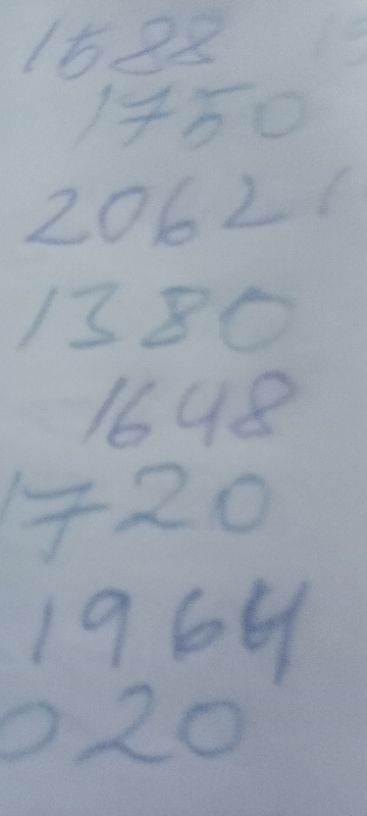 1588
1750
2062
1380
1648
1720
1964
020